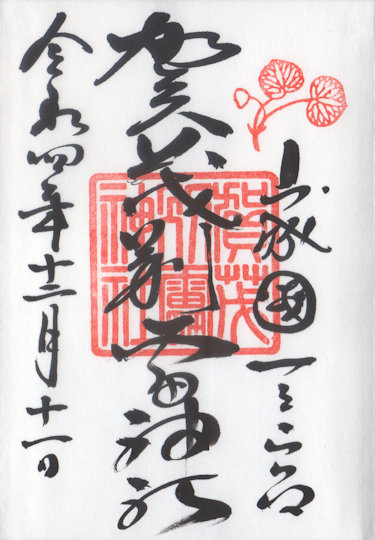 山城國一之宮
賀茂別雷神社
令和四年十二月十一日
賀茂
別雷
神社